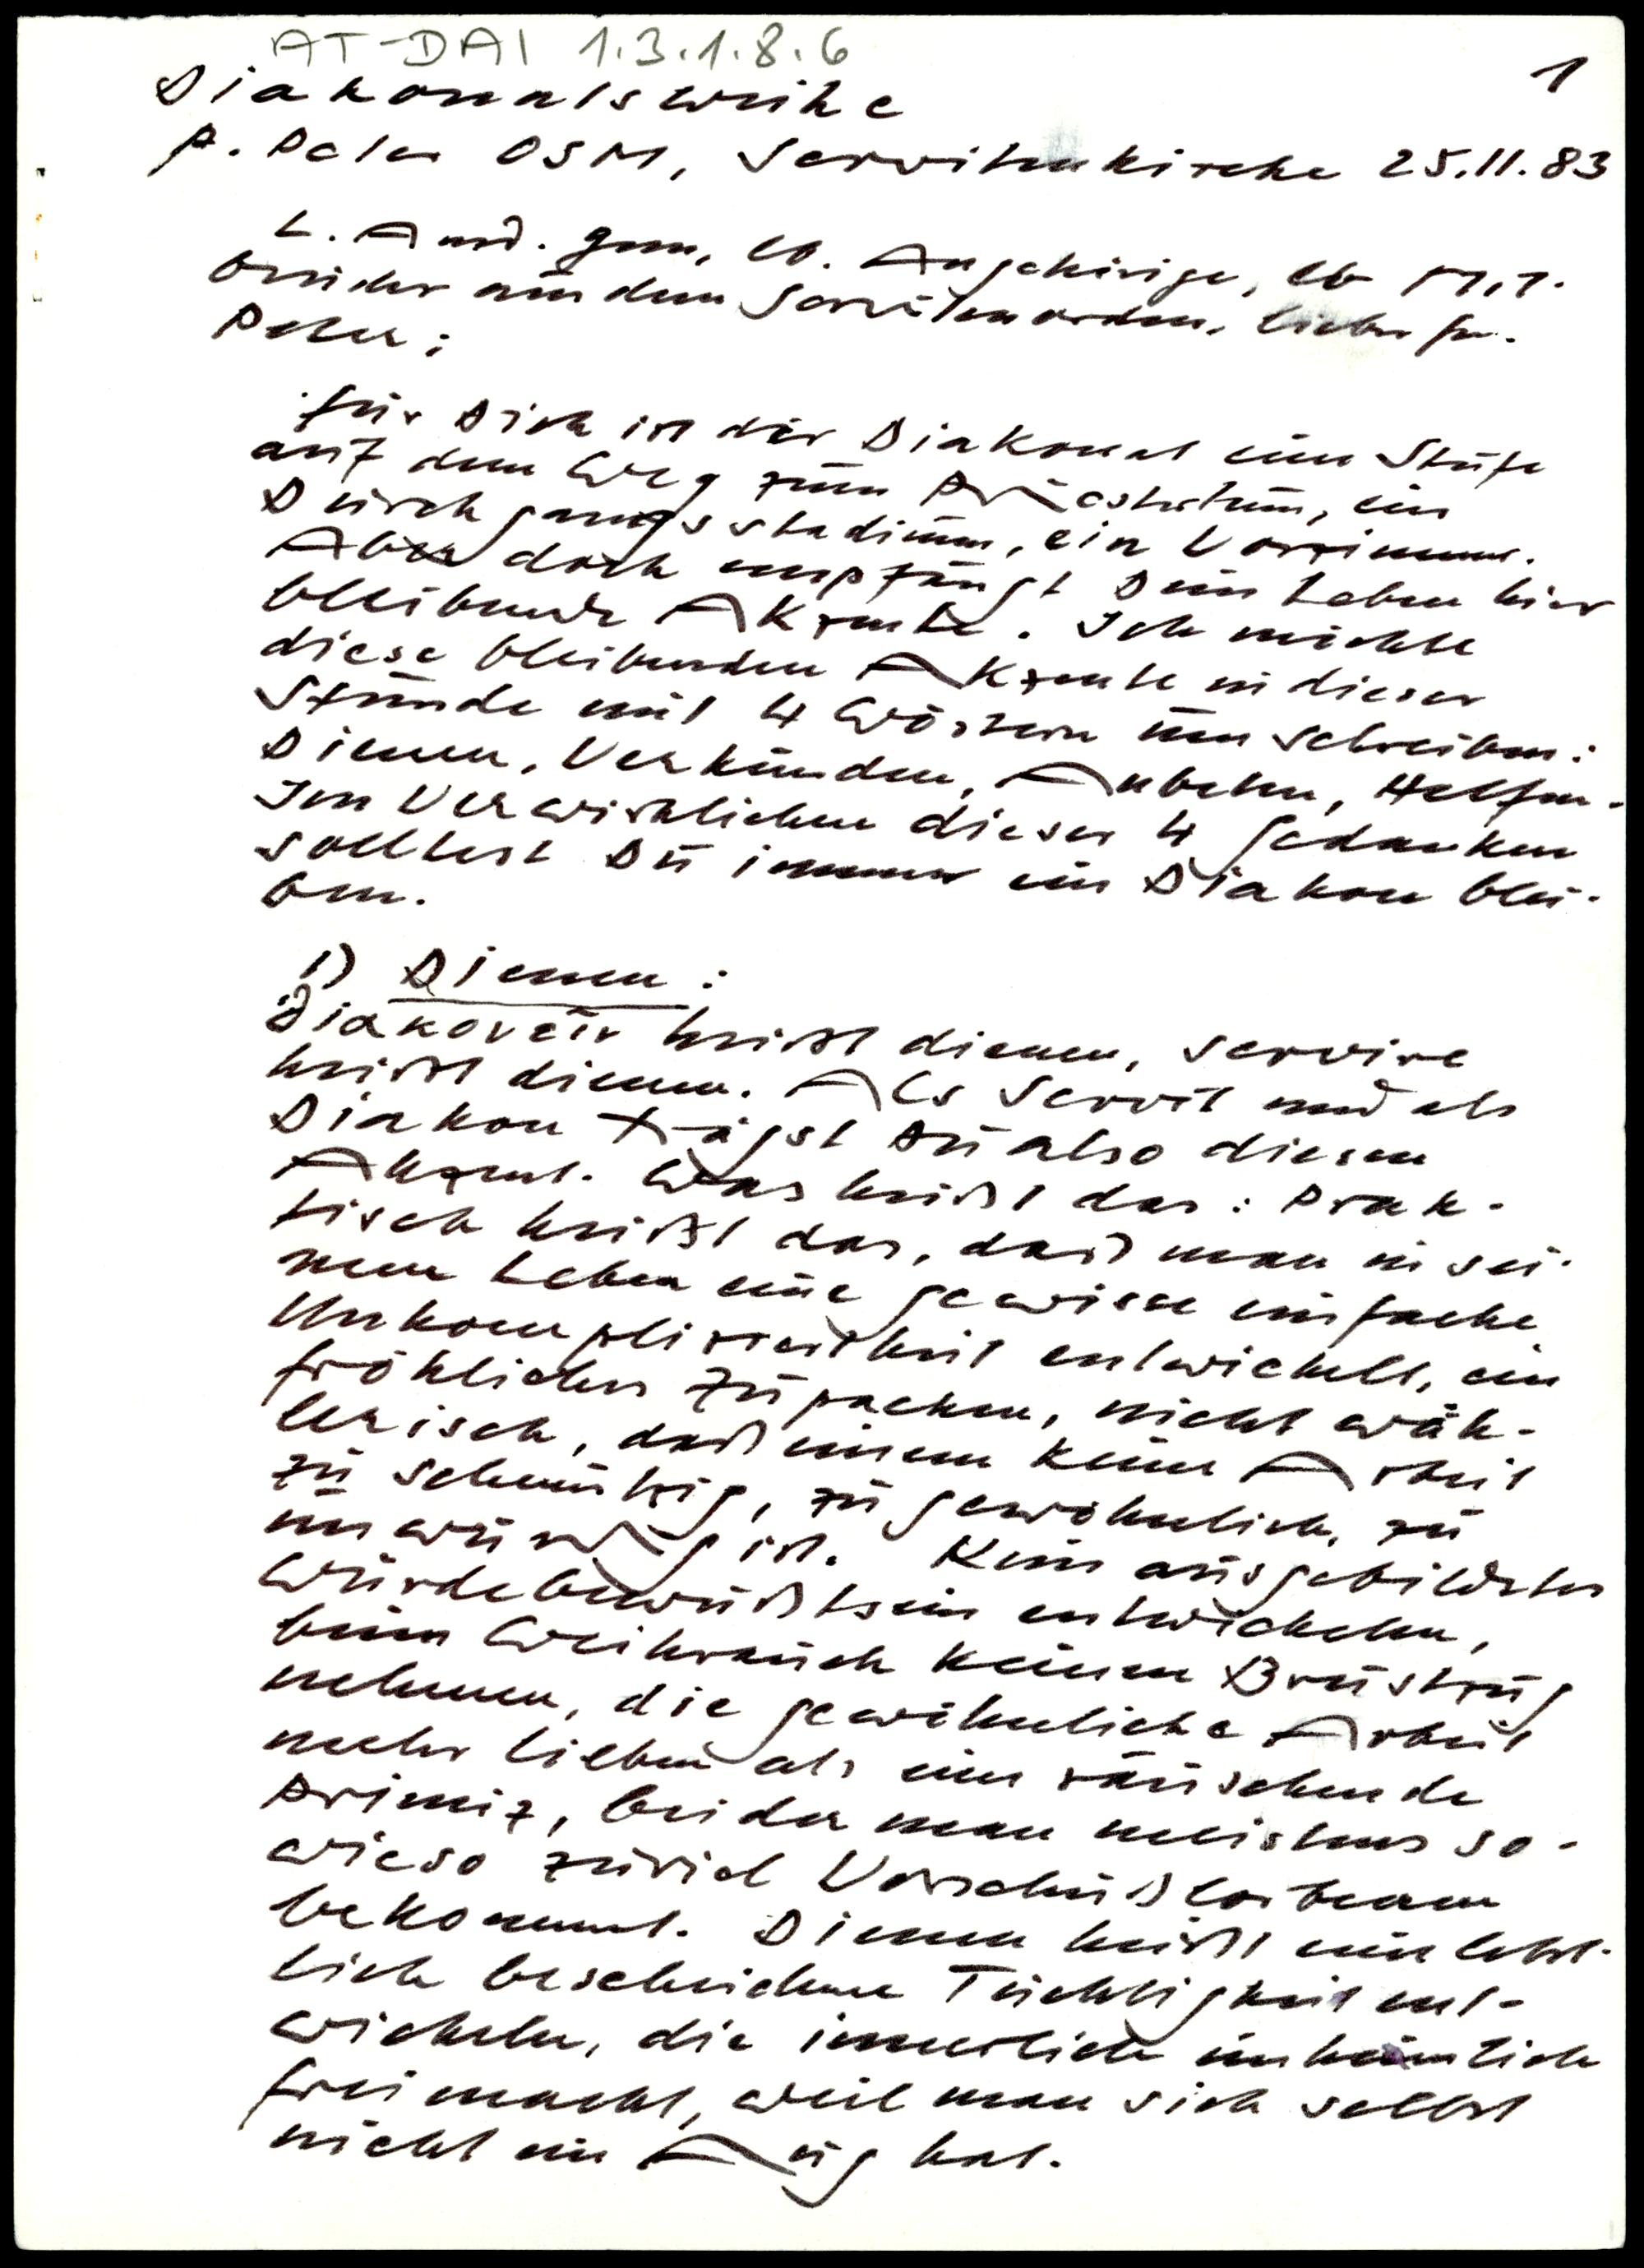 AT-DAI 1.3.1.8.6
1
Diakonatsweihe
P. Peter OSM, Servitenkirche 25.11.83
L. And. gem, lb. Angehörige, lb M. 
Brüder aus dem Servitenorden, lieber fr.
Peter:
für Dich ist der Diakonat eine Stufe
auf dem Weg zum Priestertum, ein
Durchgangsstadium, ein Vorzimmer.
Aber doch empfängt Dein Leben hier
bleibende Akzente. Ich möchte
diese bleibenden Akzente in dieser
Stunde mit 4 Wörtern umschreiben:
Dienen, Verkünden, Anbeten, Helfen.
Im Verwirklichen dieser 4 Gedanken
solltest Du immer ein Diakon blei-
ben.
1) Dienen:
Diakoneīn heißt dienen, servire
heißt dienen. Als Servit und als
Diakon trägst Du also diesen
Akzent. Was heißt das: Prak-
tisch heißt das, daß man in sei-
nem Leben eine gewisse einfache
Unkompliziertheit entwickelt, ein
fröhliches Zupacken, nicht wäh-
lerisch, daß einem keine Arbeit
zu schmutzig, zu gewöhnlich, zu
unwürdig ist. Kein ausgebildetes
Würdebewußtsein entwickeln,
beim Weihrauch keinen Brustzug
nehmen, die gewöhnliche Arbeit
mehr lieben als eine rauschende
Primiz, bei der man meistens so-
wieso zuviel Vorschußlorbeeren
bekommt. Dienen heißt eine letzt-
lich bescheidene Tüchtigkeit ent-
wickeln, die innerlich unheimlich
frei macht, weil man sich selbst
nicht im Aug hat.